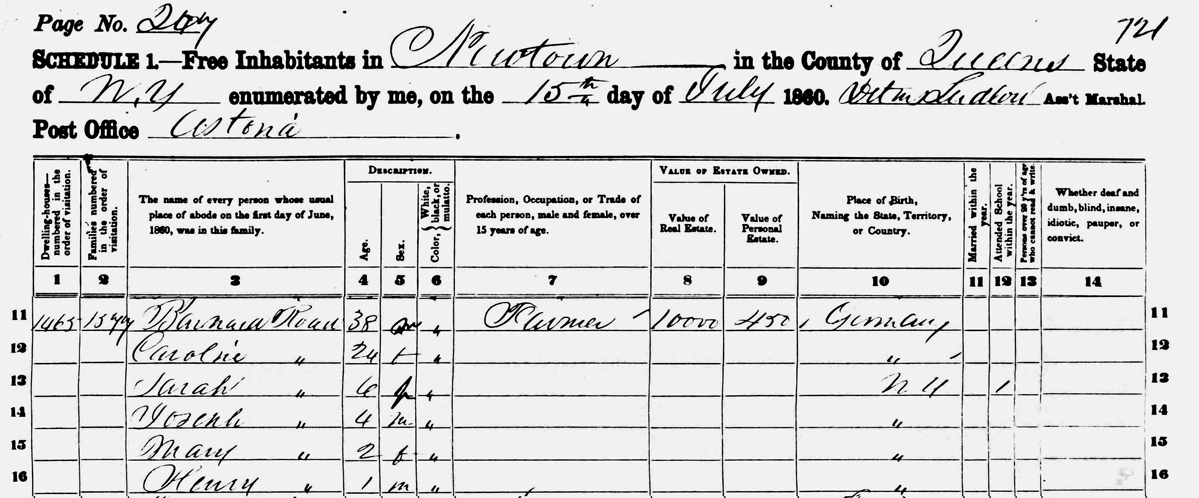 Page No. 721
SCHEDULE 1.—Free Inhabitants in Newtown in the County of Queens State
of N.Y enumerated by me, on the 15th day of July 1860. Ass't Marshal.
Post Office Astoria.
Dwelling-houses—numbered in the order of visitation.
Families numbered in the order of visitation.
The name of every person whose usual place of abode on the first day of June, 1860, was in this family.
DESCRIPTION.
Age.
Sex.
Color, { White, black, or mulatto.
Profession, Occupation, or Trade of each person, male and female, over 15 years of age.
VALUE OF ESTATE OWNED.
Value of Real Estate.
Value of Personal Estate.
Place of Birth, Naming the State, Territory, or Country.
Married within the year.
Attended School within the year.
Persons over 20 y'rs of age who cannot read & write.
Whether deaf and dumb, blind, insane, idiotic, pauper, or convict.
1 2 3 4 5 6 7 8 9 10 11 12 13 14
11 1465 Barnard 38 m " Farmer 10000 450 Germany 11
12 Caroline " 24 f " " 12
13 Sarah " 6 f " N Y 1 13
14 Joseph " 4 m " " 14
15 Mary " 2 f " " 15
16 Henry " 1 m " " 16